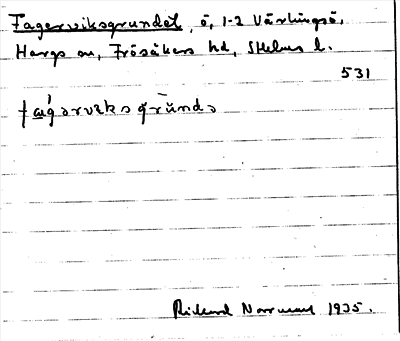 Fagerviksgrundet, ö, 1-2 Värlingsö,
Hargs sn, Frösåkers hd, Sthlms l.
531
fǽgərvɩksgründə
Rickard Norrman 1935.